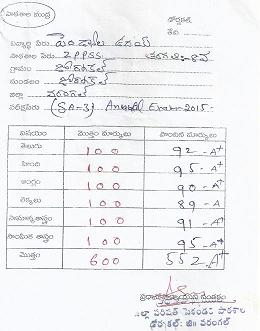 పాఠశాల ముద్ర
డోర్నకల్.
తేది
విద్యార్థి పేరు
పాఠశాల పేరు ZPPSS
గ్రామం డోర్నకల్
మండలం డోర్నకల్
జిల్లా వరంగల్
పరీక్షపేరు (SA-3) Annual Exam-2015-
విషయం మొత్తం మార్కులు పొందిన మార్కులు
తెలుగు 100 92-A+
హింది 100 95-A+
ఆంగ్లం 100 90-A+
లెక్కలు 100 89-A
సామాన్యశాస్త్రం 100 91-A+
సాంఘిక శాస్త్రం 100 95-A+
మొత్తం 600 552-A+
ప్రధానోపాధ్యాయుని సంతకం
జిల్లా పరిషత్ సెకండరి పాఠశాల
డోర్నకల్. జిల్లా వరంగల్